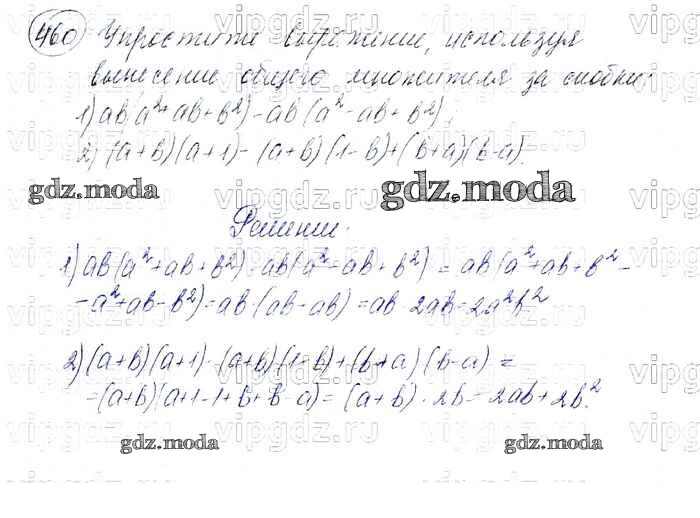 460 Упростите выражение, используя
вынесение общего множителя за скобки:
1) ab(a²+ab+b²)-ab(a²-ab+b²);
2) (a+b)(a+1)-(a+b)(1-b)+(b+a)(b-a).
gdz.moda gdz.moda
Решение.
1) ab(a²+ab+b²)-ab(a²-ab+b²) = ab(a²+ab+b²-
-a²+ab-b²)=ab·(ab-ab)=ab·2ab=2a²b²
2) (a+b)(a+1)-(a+b)(1-b)+(b+a)(b-a)=
=(a+b)(a+1-1+b+b-a)=(a+b)·2b=2ab+2b².
gdz.moda gdz.moda
vipgdz.ru